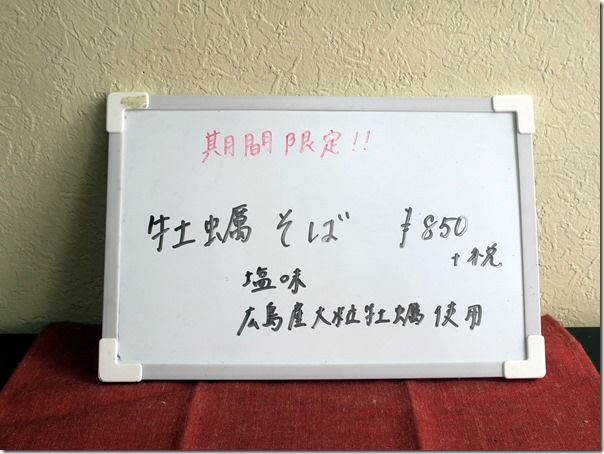 期間限定!!
牡蠣そば ¥850
+税
塩味
広島産大粒牡蠣使用